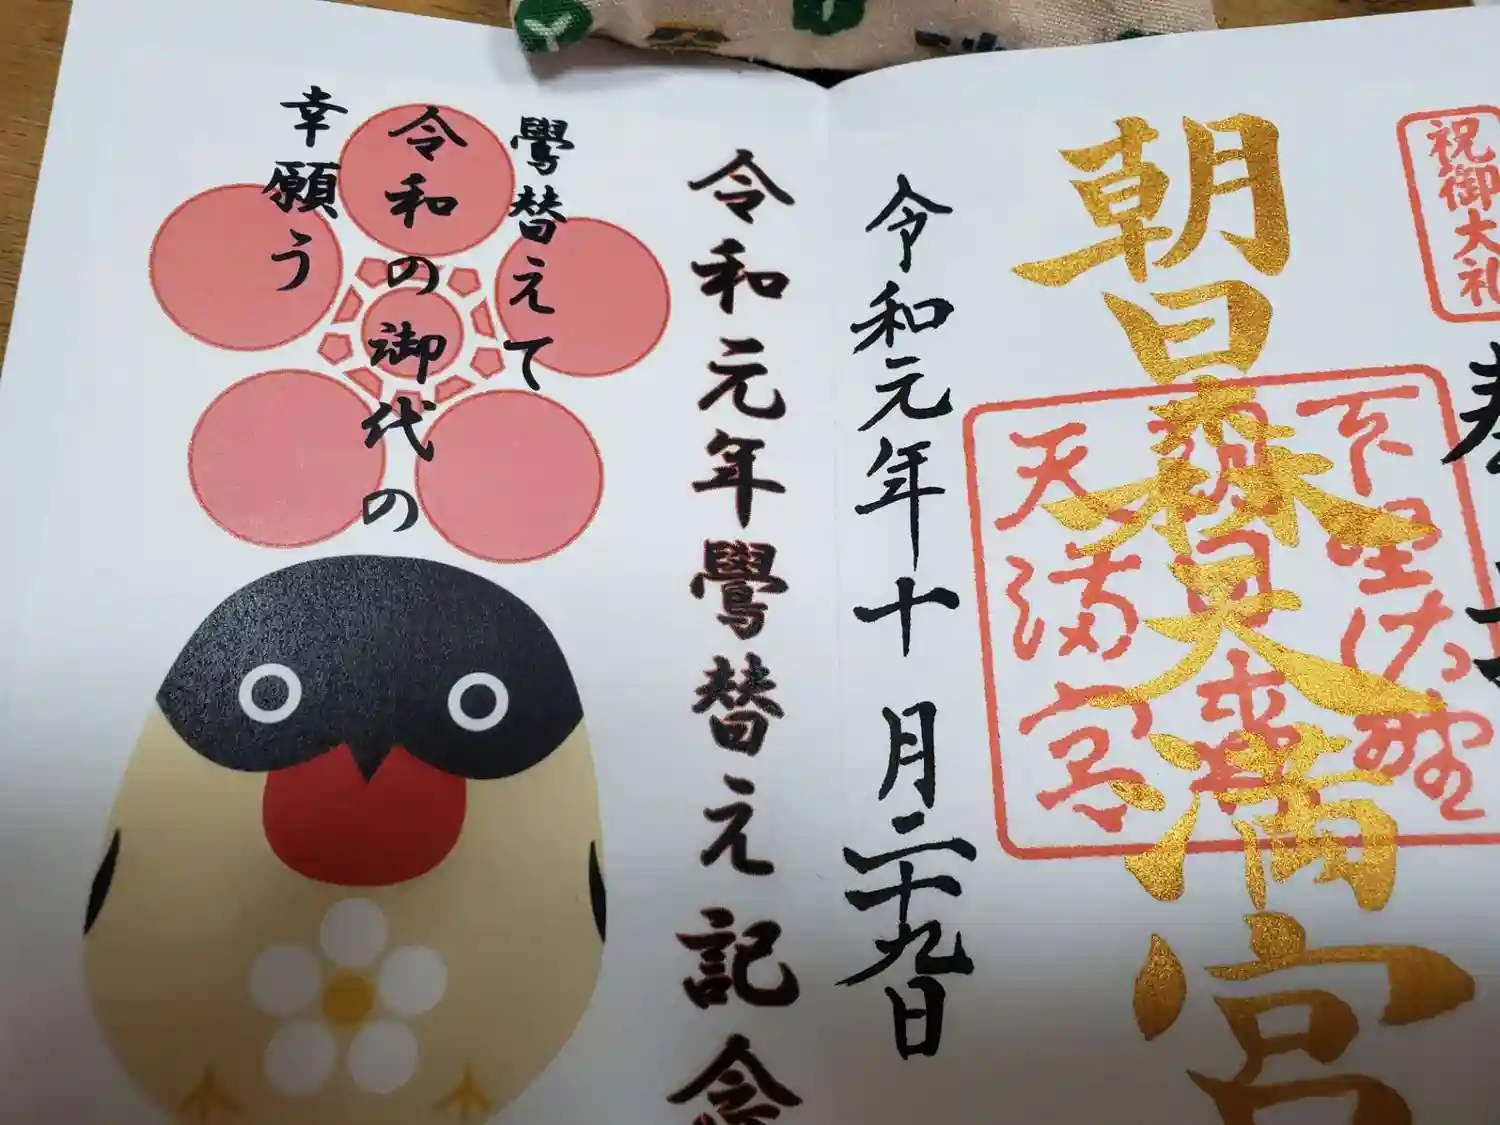 祝御大礼
朝日森天満宮
天満宮
令和元年十月二十九日
令和元年鷽替え記念
鷽替えて
令和の御代の
幸願う